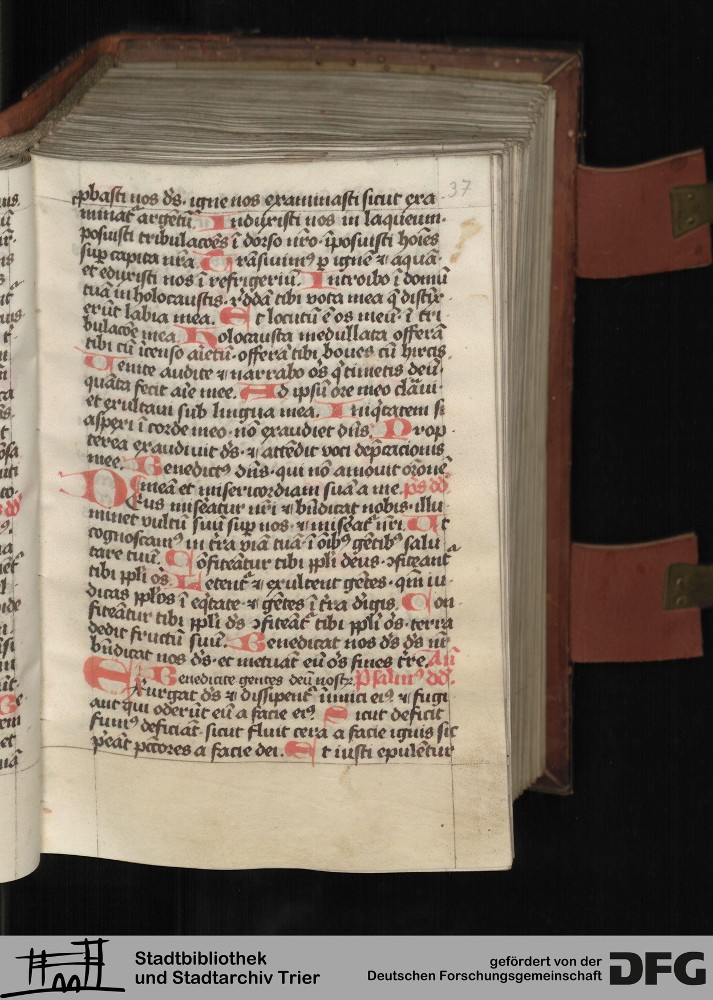 37
ꝓbasti nos dẜ · igne nos examinasti sicut exa
minat᷑ argētū. Induxisti nos in laqueum ·
posuisti tribulacōes ī dorso nr̄o · īposuisti hoīes
sup capita nr̄a. Trāsiuimꝰ p ignē ⁊ aquā ·
et eduxisti nos ī refrigeriū. Introibo ī domū
tuā in holocaustis · r̄ddā tibi vota mea q̄ distīx
erūt labia mea. Et locutū ē os meū · ī tri
bulacōe mea. Holocausta medullata offerā
tibi cū īcenso aīetū · offerā tibi boues cū hircis
Venite audite ⁊ narrabo os̄ q̄ timetis deū ·
quāta fecit aīe mee. Ad ipsū ore meo clāui ·
et exultaui sub lingua mea. Iniq̄tatem si
aspexi ī corde meo · nō exaudiet dn̄s. Prop
terea exaudiuit ds̄ · ⁊ attēdit voci dep̄cacionis
mee. Benedictꝰ dn̄s · qui nō amouit or̄onē
meā et misericordiam suā a me. ps̄ dd̄
Deus misēatur nr̄i ⁊ bn̄dicat nobis · illu
minet vultū suū sup nos · ⁊ misēat᷑ nr̄i. Ut
cognoscamꝰ in tr̄a viā tuā · ī oībꝰ gētibꝰ salu
tare tuū. Cōfiteātur tibi ppl̄i deus · ꝯfiteant᷑
tibi ppl̄i os̄. Letent᷑ ⁊ exultent gētes · qm̄ iu
dicas ppl̄os ī eq̄tate · ⁊ gētes ī tr̄a dīgis. Con
fiteātur tibi ppl̄i ds̄ ꝯfiteāt᷑ tibi ppl̄i os̄ · terra
dedit fructū suū. Benedicat nos ds̄ ds̄ nr̄
bn̄dicat nos ds̄ · et metuāt eū os̄ fines tr̄e. Añ
Benedicite gentes deū nostꝝ. Psalmꝰ dd̄.
Exurgat ds̄ ⁊ dissipent᷑ īimici eiꝰ ⁊ fugi
ant qui oderūt eū a facie eiꝰ. Sicut deficit
fumꝰ deficiāt · sicut fluit cera a facie ignis sic
p̄eāt pc̄cores a facie dei. Et iusti epulētur
Stadtbibliothek
und Stadtarchiv Trier
gefördert von der
Deutschen Forschungsgemeinschaft
DFG